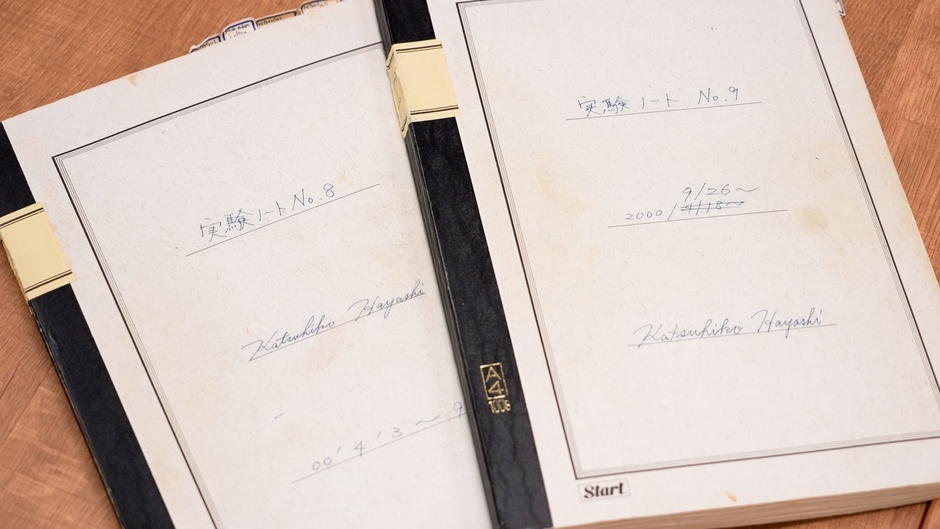 実験ノート No.8
Katsuhiko Hayashi
00' 4' 3 ~ 9
実験ノート No.9
9/26~
2000/4/18~
Katsuhiko Hayashi
A4
100G
Start